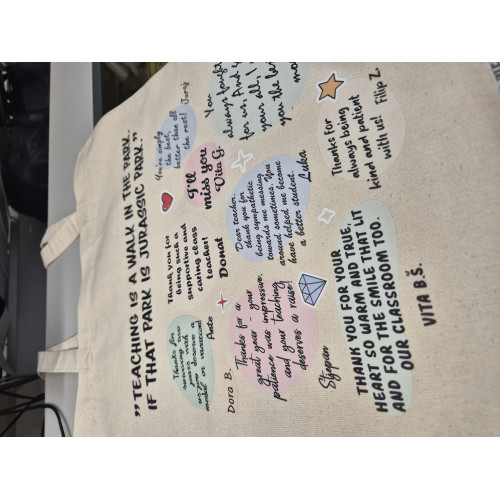 "TEACHING IS A WALK IN THE PARK..
IF THAT PARK IS JURASSIC PARK."
Thanks for
surviving four
years with
us, you deserve a
medal or
Ante
Thank you for
being such a
supportive and
caring class
teacher!
Donat
I'll
miss you
Vita G.
You're simply
the best,
better than all
the rest! Juraj
Dora B.
Thanks for a
great year - your
patience was impressive,
and your teaching
deserves a raise!
Stjepan
Dear teacher,
thank you for
being sympathetic
towards me messing
around sometimes. You
have helped me become
a better student.
Luka
You
always fought
for us, And
your all, I
you the be
mo
THANK YOU FOR YOUR
HEART SO WARM AND TRUE,
AND FOR THE SMILE THAT LIT
OUR CLASSROOM TOO.
VITA B.Š.
Thanks for
always being
kind and patient
with us! Filip Z.